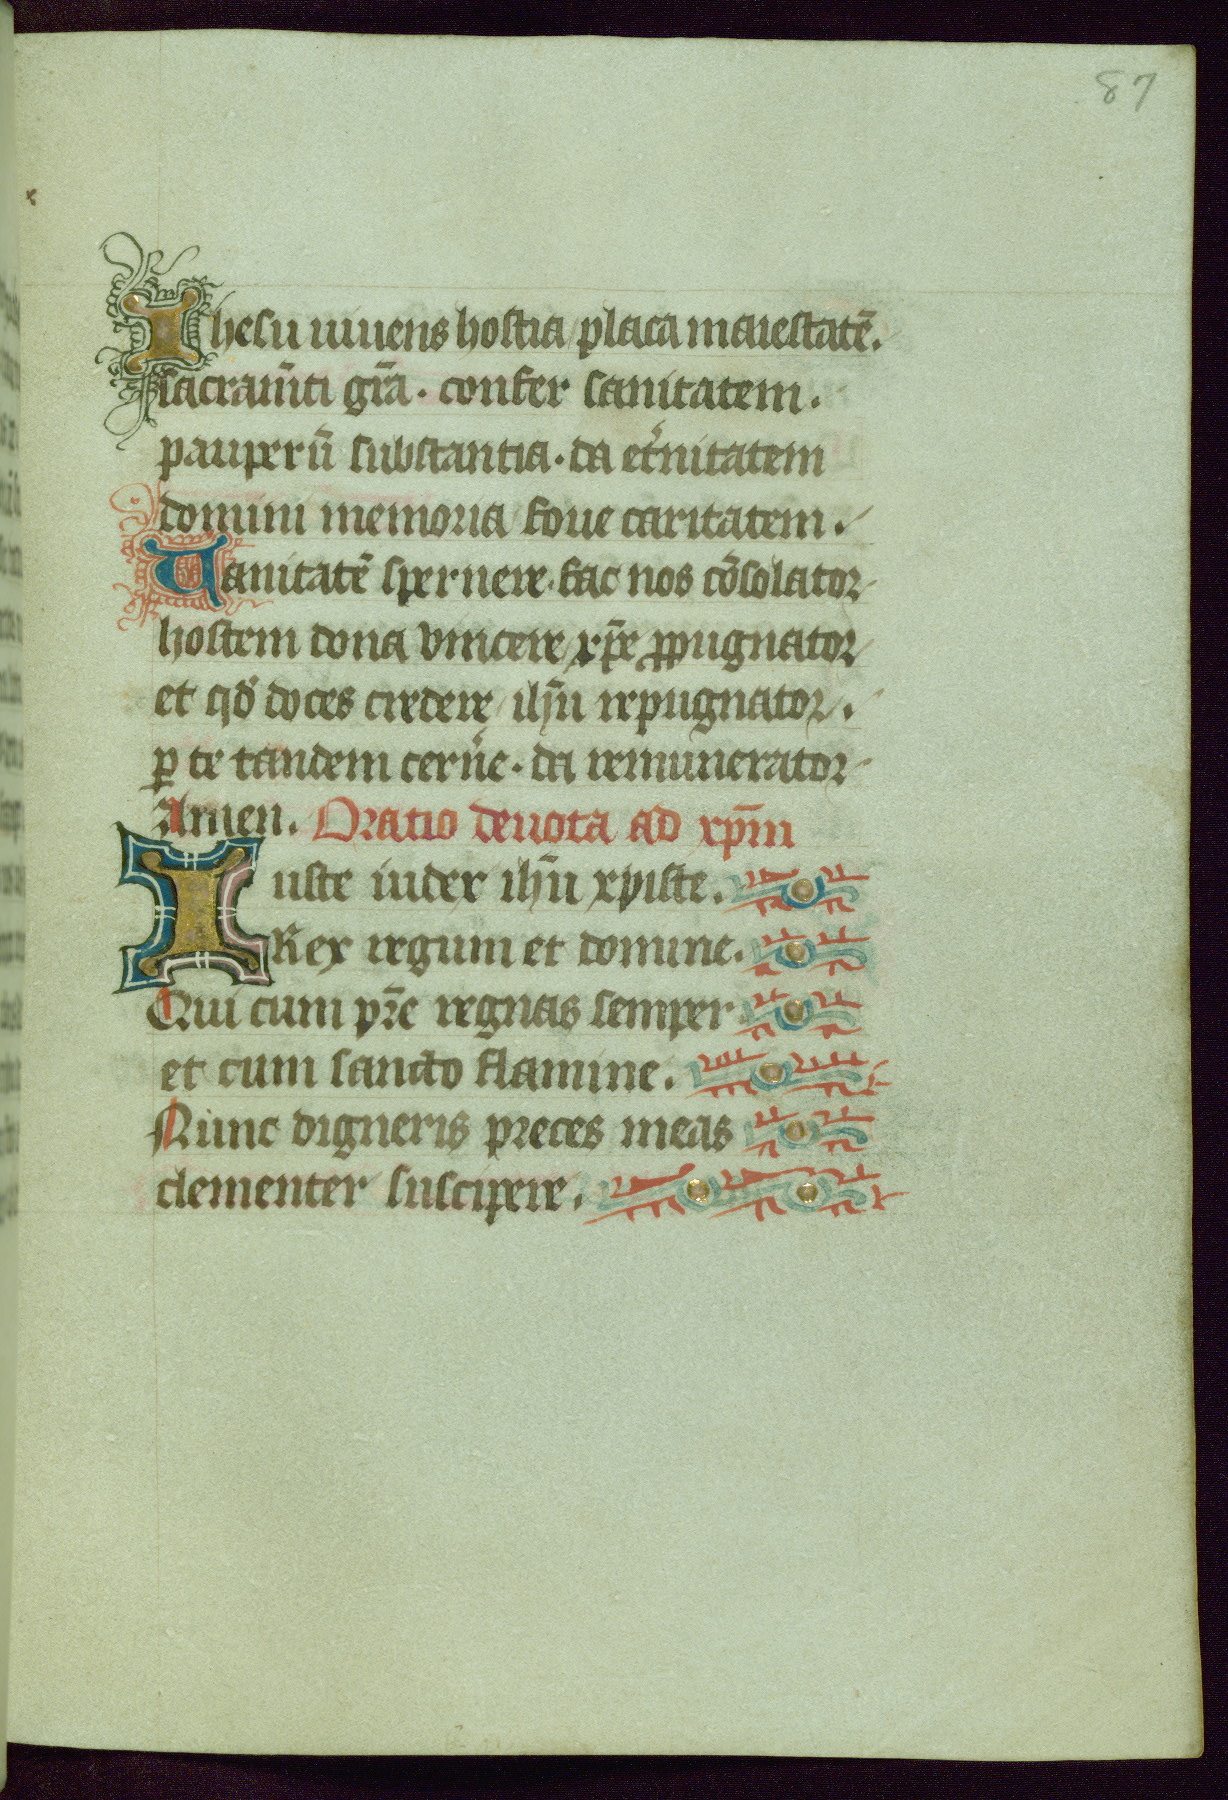 87
Ihesu uiuens hostia placa maiestatē.
sacram̄ti gr̄a. confer sanitatem.
pauperū substantia. da et̉nitatem
domini memoria foue caritatem.
Uanitatē spernere. fac nos cōsolator
hostem dona vincere xp̄e ꝓpugnator
et qd̄ doces credere ihū repugnator.
ꝑ te tandem cern̉e. da remunerator
Amen. Oratio deuota ad xp̄m
Iuste iudex ihū xpiste.
Rex regum et domine.
Qui cum pr̄e regnas semper
et cum sancto flamine.
Nunc digneris preces meas
clementer suscipere.